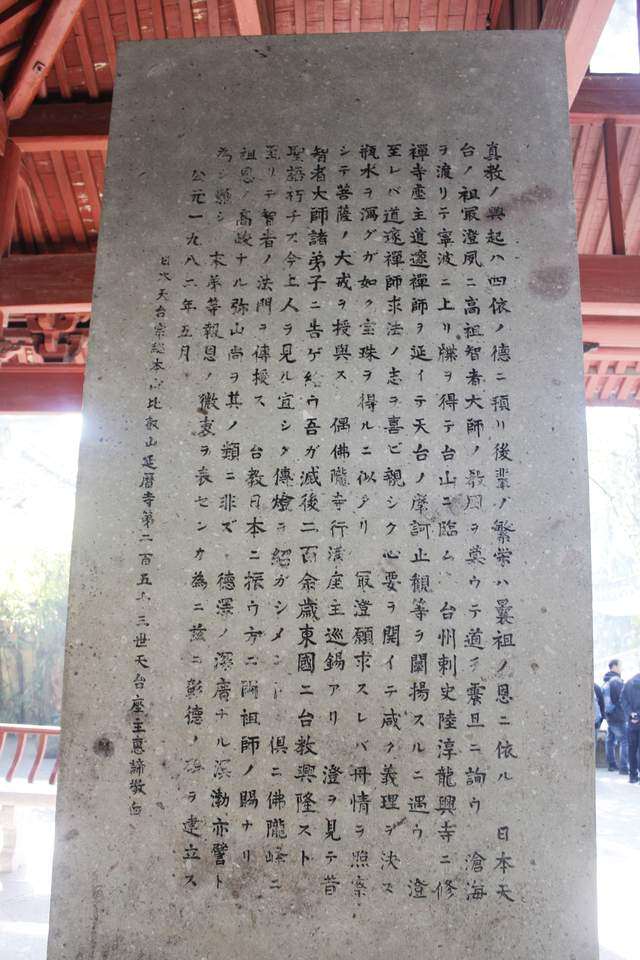 真教ノ興起ハ四依ノ德ニ預リ後輩ノ繁栄ハ曩祖ノ恩ニ依ル 日本天
台ノ祖最澄夙ニ高祖智者大師ノ教風ヲ慕ウテ道ヲ震旦ニ詢ウ 滄海
ヲ渡リテ寧波ニ上リ牒ヲ得テ台山ニ臨ム 台州刺史陸淳龍興寺ニ修
禪寺座主道邃禪師ヲ延イテ天台ノ摩訶止観等ヲ闡揚スルニ遇ウ 澄
至レバ道邃禪師求法ノ志ヲ喜ビ親シク心要ヲ開イテ咸ク義理ヲ決ス
瓶水ヲ瀉グガ如ク宝珠ヲ得ルニ似タリ 最澄願求スレバ丹情ヲ照察
シテ菩薩ノ大戒ヲ授與ス 偶佛隴寺行満座主巡錫アリ 澄ヲ見テ昔
智者大師諸弟子ニ告ゲ給ウ吾ガ滅後二百余歳東國ニ台教興隆スト
聖語朽チズ今上人ヲ見ル宜シク傳燈ヲ紹ガシメン 倶ニ佛隴峰ニ
至リテ智者ノ法門ヲ傳授ス 台教日本ニ振ウ方ニ両祖師ノ賜ナリ
祖恩ノ高峻ナル弥山尚ヲ其ノ類ニ非ズ 德澤ノ深廣ナル溟渤亦譬ト
為シ難シ 末弟等報恩ノ微衷ヲ表センカ為ニ茲ニ彰德ノ碑ヲ建立ス
公元一九八二年五月
日本天台宗総本山比叡山延暦寺第二百五十三世天台座主恵諦敬白